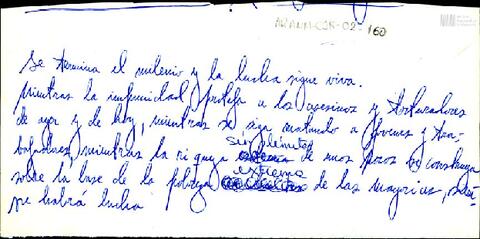 ARANA-COR-02-160
Se termina el milenio y la lucha sigue viva.
Mientras la impunidad proteja a los asesinos y torturadores
de ayer y de hoy, mientras se siga matando a jóvenes y tra-
bajadores, mientras la riqueza sin límites de unos pocos se construya
sobre la base de la pobreza extrema de las mayorías, siem-
pre habrá lucha